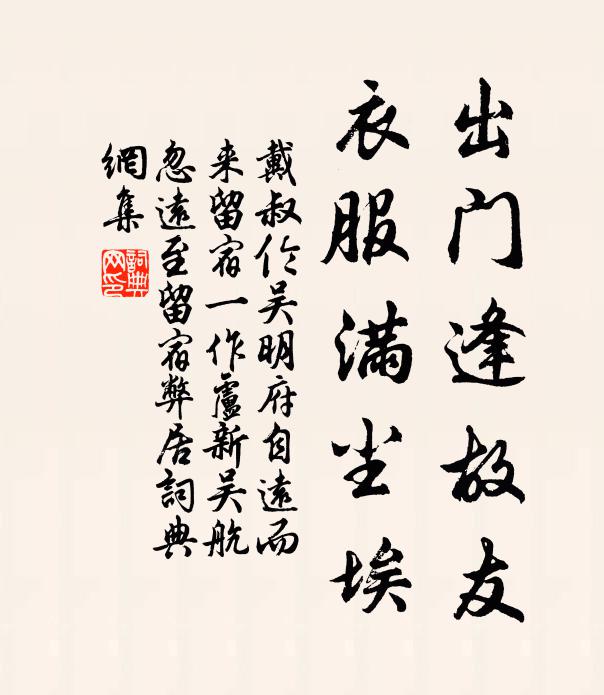 出门逢故友
衣服满尘埃
戴叔伦吴明府自遠而
来留宿一作盧新吴航
忽遠至留宿弊居詞典
網集
詞典
网印